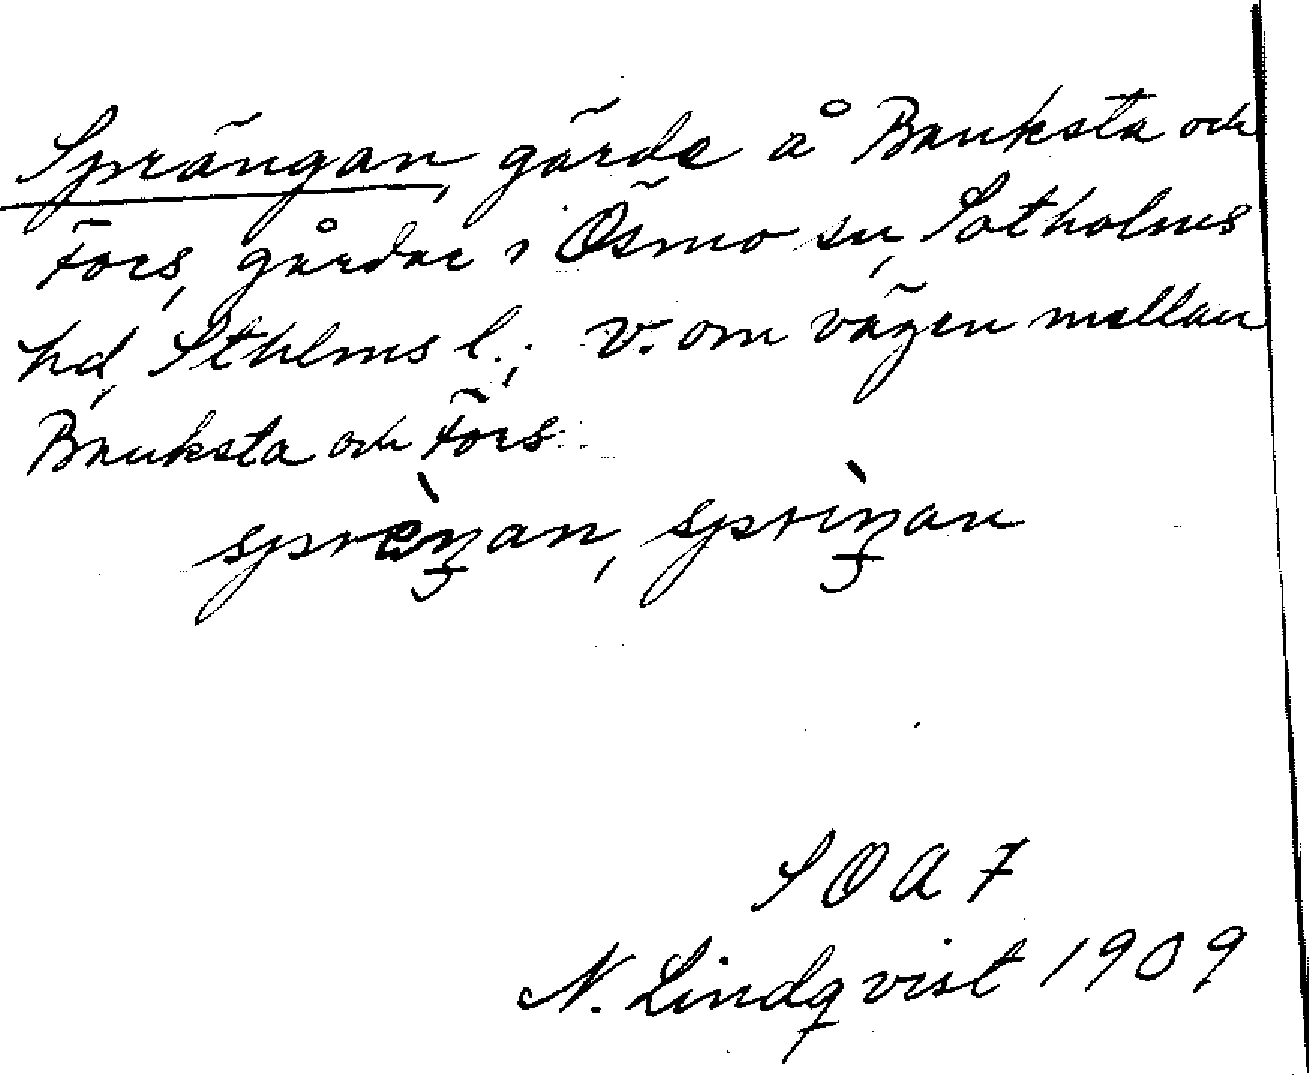 Sprängan, gärde å Bauksta och
Fors, gårdar i Ösmo sn, Sotholms
hd, Sthlms l.; v. om vägen mellan
Bauksta och Fors.
sprèŋan, sprìŋan
SOA 7
N. Lindqvist 1909